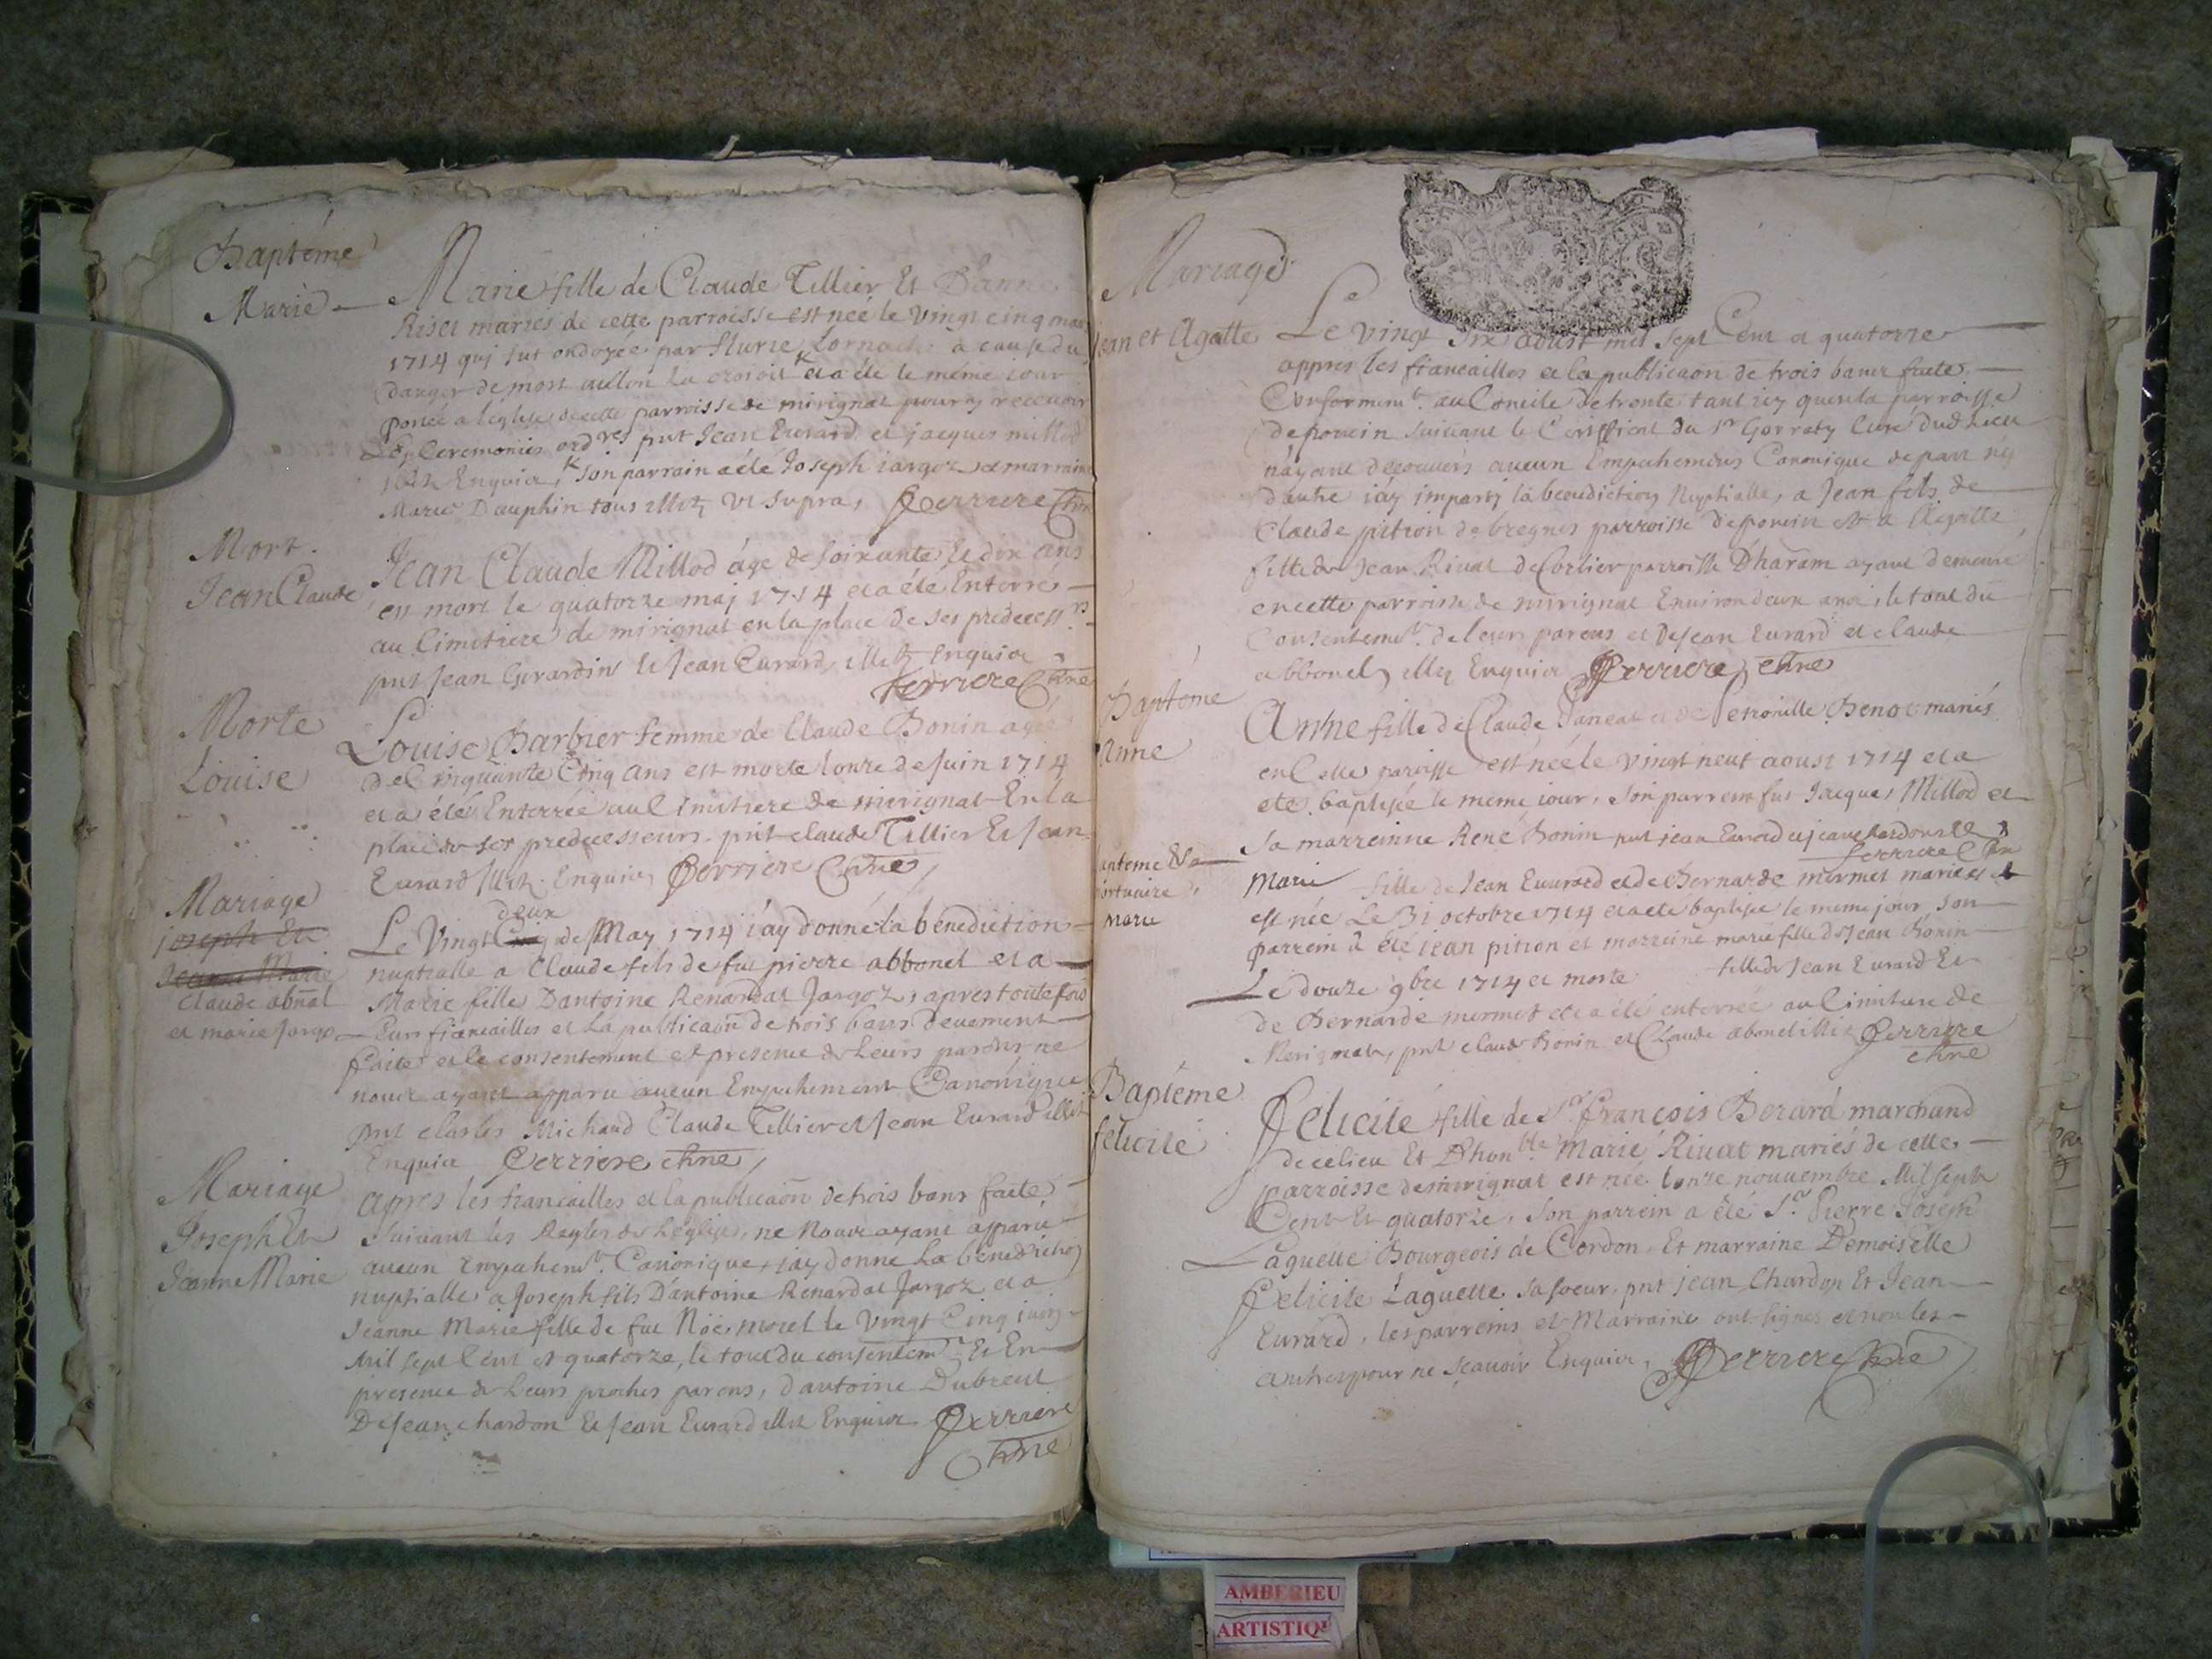 Baptéme
Marie
Marie fille de Claude Tillier Et D'anne
Riset mariés de cette parroisse est née le vingt cinq
1714 quj fut ondoyée par a cause du
danger de mort et a été le même jour
portée a leglise de cette parroisse de mirignat pour y recevoir
Les Ceremonies ord.res pnt Jean Evrard et jacques millod
illit. Enquis, son parrain a été Joseph jargoz et marraine
Marie Dauphin tous illitz Vt supra, Perriere
Mort.
Jean Claude
Jean Claude Millod âge de soixante et dix ans
est mort le quatorze maj 1714 et a été Enterré
au Cimetiere de mirignat en la place de ses predecess.rs
pnts Jean Girardin et Jean Evrard, illitz Enquis
Perriere
Morte
Louise
Louise Barbier femme de Claude Bonin agée
de Cinquante Cinq ans est morte lonze de Juin 1714
et a été Enterrée au Cimitiere de mirignat En la
place de ses predecesseurs. pnt claude Tillier Et Jean
Evrard illitz. Enquis, Perriere
Mariage
joseph Et
Jeanne Marie
Claude abonal
et marie Jargo
deux
Le Vingt Cinq de May 1714 j'ay donné la benediction
nuptialle a Claude fils de fut pierre abbonel et a
Marie fille Dantoine Renardat Jargoz, apres toutefois
leurs fiancailles et la publicaon de trois bans deuement
faites et le consentement et presence de leurs parens ne
nous ayant apparu aucun Empechement Canonique
pnt clarles Michaud Claude Tillier et Jean Evrard illit
Enquis Perriere
Mariage
Joseph Et
Jeanne Marie
Apres les francailles et la publicaon de trois bans faite
suivant les Regles de Leglise, ne Nous ayant apparu
aucun Empechem.t Canonique, j'ay donne La benediction
nuptialle a Joseph fils D'antoine Renardat Jargoz et a
Jeanne Marie fille de fut Noé morel le Vingt Cinq juin
Mil sept Cent et quatorze, le tout du consentem.t Et En
presence de Leurs proches parens, d'antoine Dubreul
De Jean chardon Et Jean Evrard illit Enquis Perriere
Mariage
jean et Agatte
Le vingt six aoust mil sept Cent et quatorze
appres les fiancailles et la publicaon de trois bancs faite
Conformem.t au Concile de trente tant icy quen la parroisse
de poncin suivant le Certificat du Sr Gorraty Curé dud lieu
n'ayant decouvers aucun Empechemens Canonique de part nj
dautre j'ay imparty la benediction Nuptialle, a Jean fils de
Claude pition de bregnes parroisse de poncin et a Agatte
fille de Jean Rivat de Corlier parroisse D'haram ayant demeuré
en cette parroisse de mirignat Environ deux ans, le tout du
Consentem.t de leurs parens et de Jean Evrard et claude
abbonel, illitz Enquis Perriere
Baptéme
Anne
Anne fille de Claude Janeat et de Petronille Benoc mariés
en Cette paroisse est née le vingt neuf aoust 1714 et a
été baptisée le même jour, son parrein fut Jacques Millod et
Sa marreinne René Bonin pnt jean Evrard et jean
Perriere
Marie
Marie fille de Jean Evrard et de Bernarde mermet mariés
est née Le 31 octobre 1714 et a été baptisée le meme jour, son
parrein a été jean pition et marreine marie fille de Jean Bonin
Le douze 9bre 1714 et morte fille de Jean Evrard Et
de Bernarde mermet et a été enterrée au Cimitiere de
Merignat, pnt claude Bonin et Claude abonel illit Perriere
Baptéme
felicité
Felicité fille de Sr François Berard marchand
de ce lieu Et D'hon.ble Marie Rivat mariés de cette
parroisse de mirignat est née lonze nouvembre Mil sept
Cent Et quatorze, son parrein a été Sr. Pierre Joseph
Laguette Bourgeois de Cerdon Et marraine Demoiselle
Felicité Laguette sa soeur, pnt jean Chardon Et Jean
Evrard, les parreins et Marraine ont signes et non les
autres pour ne sçavoir Enquis, Perriere
AMBERIEU
ARTISTIQU